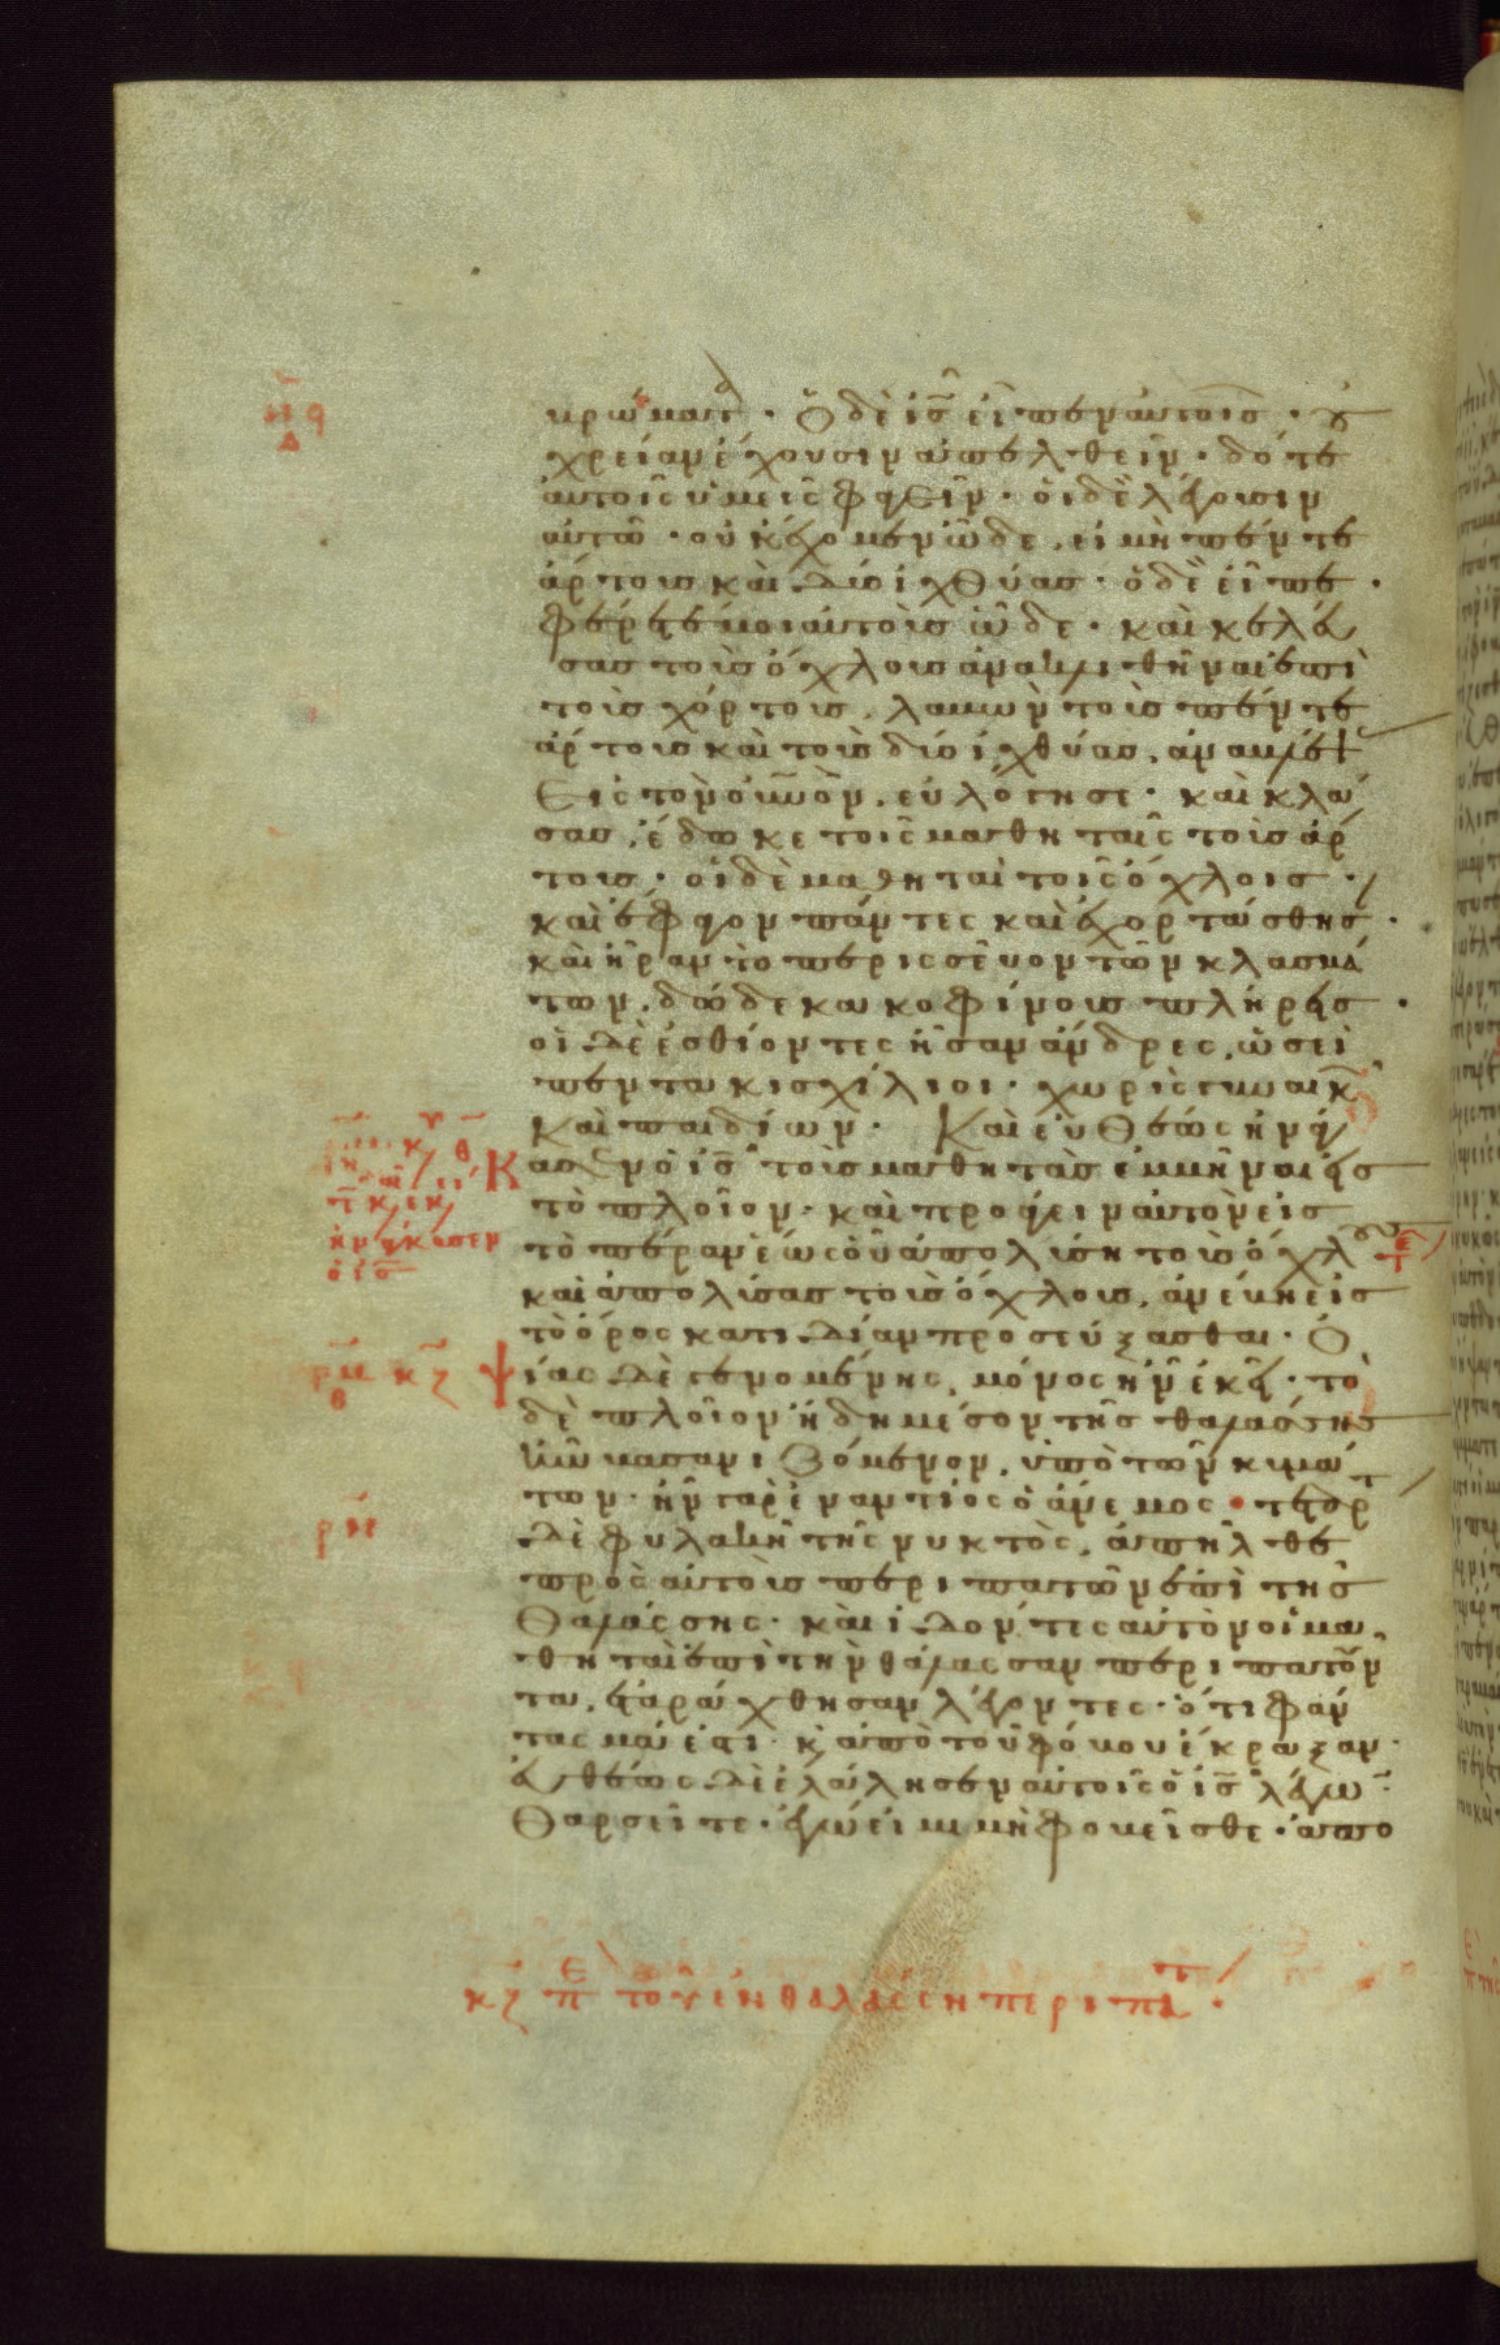 βρώματα · Ὁ δὲ ις̅ εἶπεν αὐτοῖς · οὐ
χρείαν ἔχουσιν ἀπελθεῖν · δότε
αὐτοῖς ὑμεῖς φαγεῖν · οἱ δὲ λέγουσιν
αὐτῶ · οὐκ ἔχομεν ὧδε, εἰ μὴ πέντε
ἄρτους καὶ δύο ἰχθύας · ὁ δὲ εἶπε ·
φέρετέ μοι αὐτοὺς ὧδε · καὶ κελεύ
σας τοὺς ὄχλους ἀνακλιθῆναι ἐπὶ
τοὺς χόρτους, λαβὼν τοὺς πέντε
ἄρτους καὶ τοὺς δύο ἰχθύας, ἀναβλέψας
εἰς τὸν οὐ̅νὸν, εὐλόγησε · καὶ κλά
σας, ἔδωκε τοῖς μαθηταῖς τοὺς ἄρ
τους · οἱ δὲ μαθηταὶ τοῖς ὄχλοις ·
καὶ ἔφαγον πάντες καὶ ἐχορτάσθησ ·
καὶ ἦραν τὸ περισσεῦον τῶν κλασμά
των, δώδεκα κοφίνους πλήρεις ·
οἱ δὲ ἐσθίοντες ἦσαν ἄνδρες, ὡσεὶ
πεντακισχίλιοι · χωρὶς γυναικ
καὶ παιδίων · Καὶ εὐθέως ἠνάγ
Κασεν ὁ ις̅ τοὺς μαθητὰς ἐμβῆναι εἰς
τὸ πλοῖον · καὶ προάγειν αὐτὸν εἰς
τὸ πέραν ἕως οὗ ἀπολύση τοὺς ὄχλους
καὶ ἀπολύσας τοὺς ὄχλους, ἀνέβη εἰς
τὸ ὄρος κατιδίαν προσεύξασθαι · Ὀ
ρμβ κζ Ψίας δὲ γενομένης, μόνος ἦν ἐκεῖ · τὸ
δὲ πλοῖον ἤδη μέσον τῆς θαλάσσης
ἦν βασανιζόμενον, ὑπὸ τῶν κυμά
των · ἦν γὰρ ἐναντίος ὁ ἄνεμος · τετάρτ
δὲ φυλακῆ τῆς νυκτὸς, ἀπῆλθε
πρὸς αὐτοὺς περιπατῶν ἐπὶ τῆς
θαλάσσης · καὶ ἰδόντες αὐτὸν οἱ μα
θηταὶ ἐπὶ τὴν θάλασσαν περιπατοῦν
τα, ἐταράχθησαν λέγοντες · ὅτι φάν
τασμά ἐστι · κ ἀπὸ τοῦ φόβου ἔκραξαν ·
εὐθέως δὲ ἐλάλησεν αὐτοῖς ὁ ις̅ λέγων ·
θαρσεῖτε · ἐγώ εἰμι μὴ φοβεῖσθε · ἀπο
κζ πε τοῦ ἐν θαλάσση περιπάτ ·